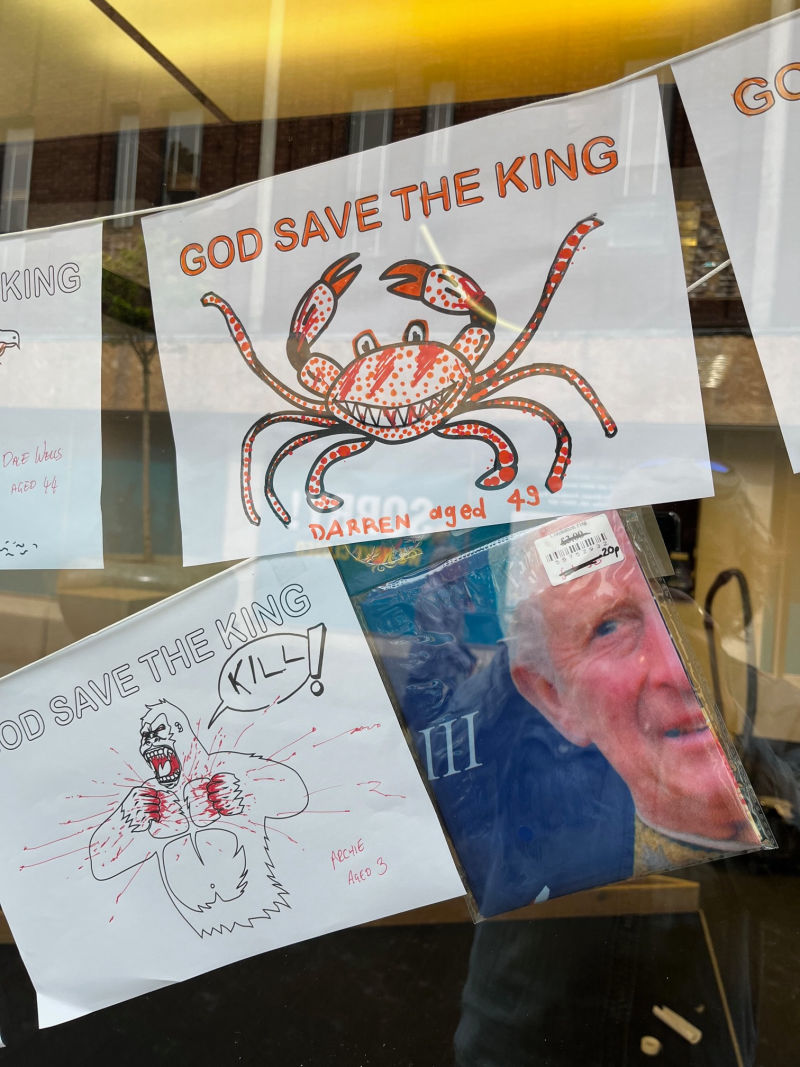 GO
GOD SAVE THE KING
KING
DALE WELLS
AGED 44
DARREN aged 49
£3.00
20p
GOD SAVE THE KING
KILL!
III
ARCHIE
AGED 3